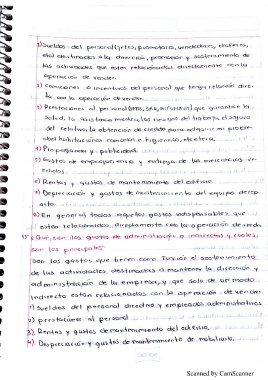 1) Sueldos del personal (jefes, promotoria, vendedores, choferes,
etc) destinados a la dirección, promoción y sostenimiento de
las actividades que esten relacionados directamente con la
operación de vender.
2) Comisiones e incentivos del personal que tenga relación direc
ta con la operación de vender.
3) Prestaciones al personal (IMSS, SAR, Infonavit) que garantice la
salud, la asistencia medica, los riesgos del trabajo, el seguro
del retiro y la obtención de credito para adquirir en propie
dad habitaciones comodas e higienicas, etcetera.
4) Propaganda y publicidad.
5) Gastos de empaque, envio y entrega de las mercancias de
6) Rentas y gastos de mantenimiento del edificio.
7) Depreciación y gastos de mantenimiento del equipo de rep
arto.
8) En general todos aquellos gastos indispensables que
estan relacionados directamente con la operación de vender
¿Qué son los gastos de administración o indirectos y cuales
son los principales
Son los gastos que tienen como función el sostenimiento
de las actividades destinadas a mantener la dirección y
administración de la empresa, y que solo de un modo
indirecto están relacionados con la operación de vender.
1) Sueldos del personal directivo y empleados administrativos
2) prestaciones al personal
3) Rentas y gastos de mantenimiento del edificio.
4) Depreciación y gastos de mantenimiento de mobiliario.
Scanned by CamScanner